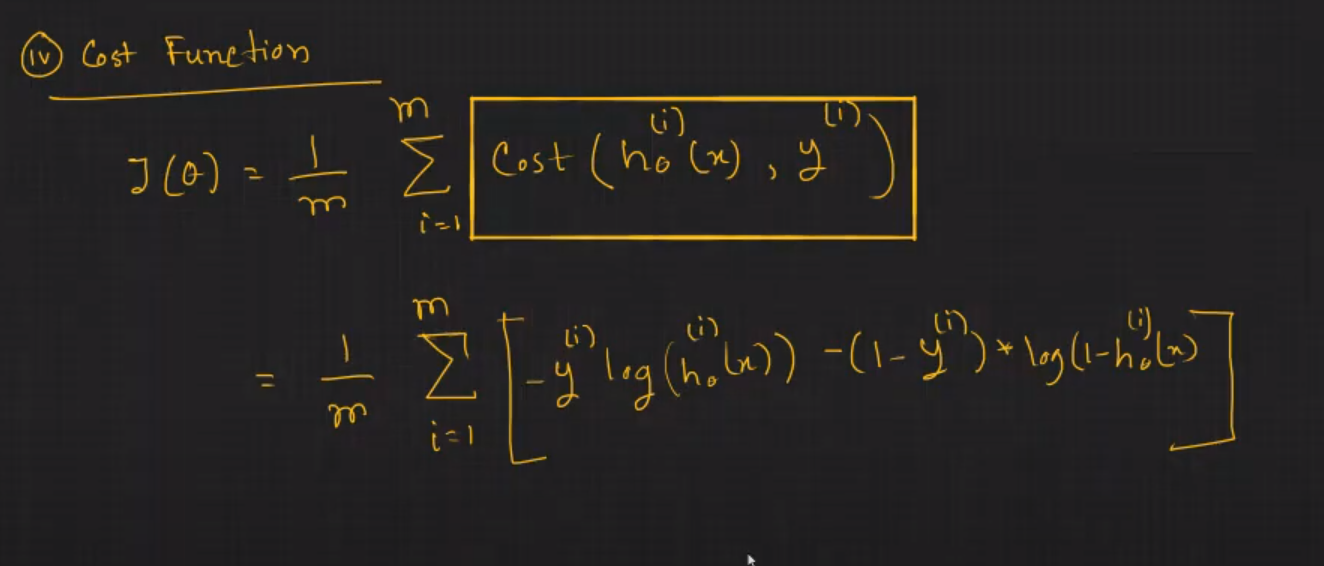 (iv) Cost Function
J(θ) = 1/m ∑_{i=1}^{m} Cost(h_θ^{(i)}(x), y^{(i)})
= 1/m ∑_{i=1}^{m} [-y^{(i)} log(h_θ^{(i)}(x)) - (1-y^{(i)}) * log(1-h_θ^{(i)}(x)]